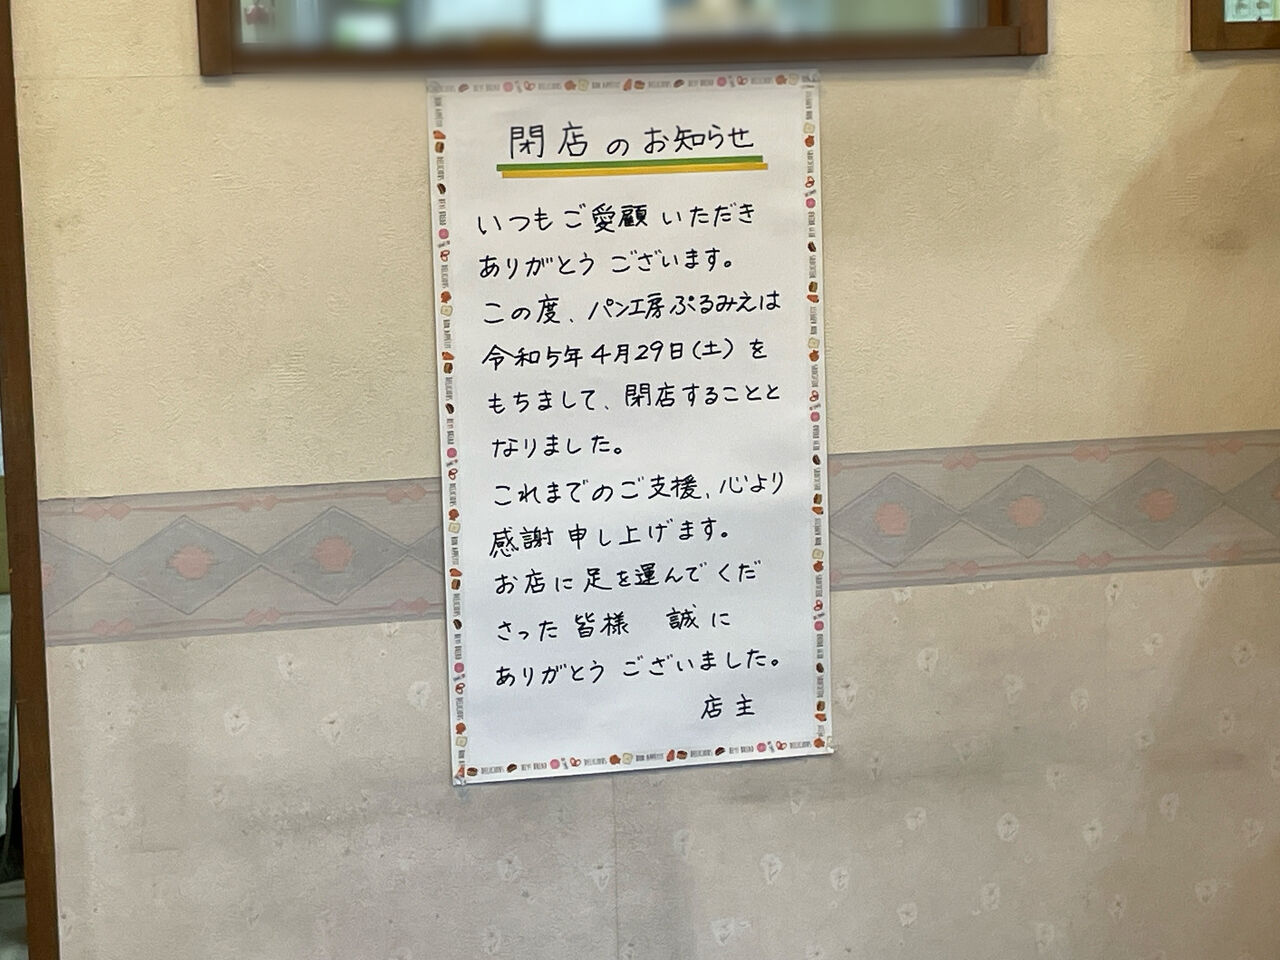 閉店のお知らせ
いつもご愛顧いただき
ありがとうございます。
この度、パン工房ぷるみえは
令和5年4月29日(土)を
もちまして、閉店することと
なりました。
これまでのご支援、心より
感謝申し上げます。
お店に足を運んでくだ
さった皆様 誠に
ありがとうございました。
店主